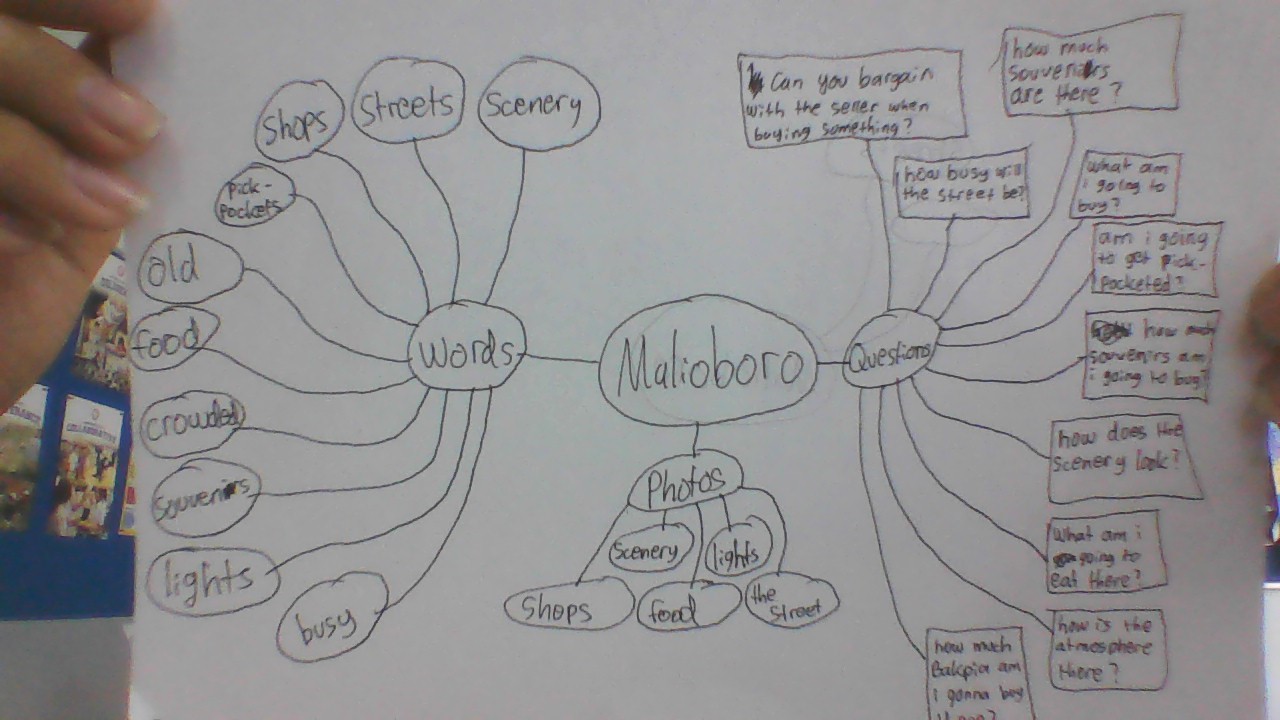 Malioboro
Words
Scenery
Streets
Shops
Pick-
Pockets
old
food
crowded
Souvenirs
lights
busy
Photos
Shops
Scenery
food
lights
the
Street
Questions
Can you bargain
with the seller when
buying something?
how busy will
the street be?
how much
souvenirs
are there?
What am
i going to
buy?
am i going
to get pick-
pocketed?
how much
souvenirs am
i going to buy?
how does the
scenery look?
What am i
going to
eat there?
how is the
atmosphere
there?
how much
Bakpia am
i gonna buy
COLLABORATIVE